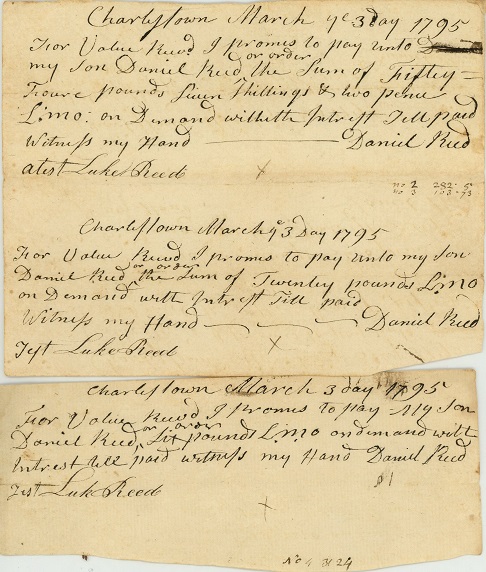 Charlestown March ye 3 Day 1795
For Value Recd I promis to pay unto
my Son Daniel Reed or order the Sum of Fiftey=
Foure pounds Seven Shillings & two pence
L:mo: on Demand with Intrest Till paid
Witness my Hand Daniel Reed
atest Luke Reed x
no 2 282-5
no 3 103-73
Charlestown March ye 3 Day 1795
For Value Recvd I promis to pay unto my Son
Daniel Reed or order the Sum of Twenley pounds L:mo
on Demand with Intrest Till paid
Witness my Hand Daniel Reed
Test Luke Reed x
Charlestown March 3 day 1795
For Value Recvd I promis to pay My Son
Daniel Reed, or order pounds L:mo on demand with
Intrest till paid witness my Hand Daniel Reed
$1
Test Luk Reed
x
No 4 31 24